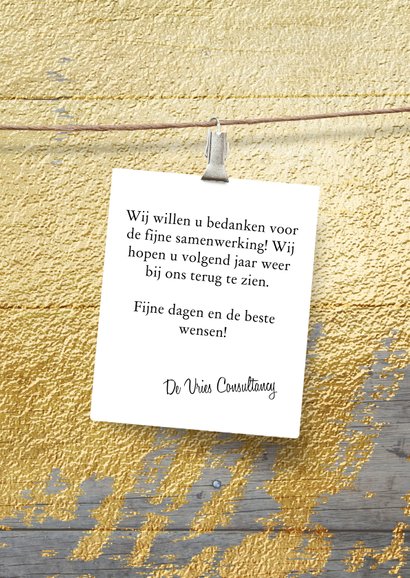 Wij willen u bedanken voor
de fijne samenwerking! Wij
hopen u volgend jaar weer
bij ons terug te zien.
Fijne dagen en de beste
wensen!
De Vries Consultancy